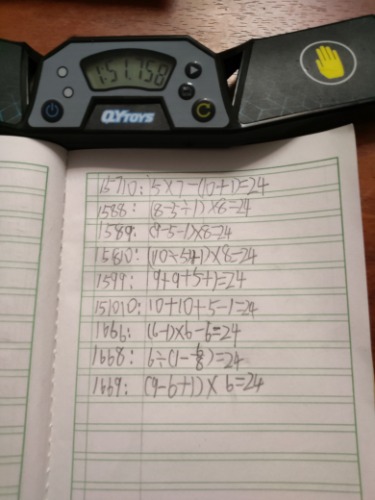 1:51.158
QYTOYS
15710: 5×7-(10+1)=24
1588: (8-5÷1)×8=24
1589: (9-5-1)×8=24
15810: (10÷5+1)×8=24
1599: 9+9+5+1=24
151010: 10+10+5-1=24
1666: (6-1)×6-6=24
1668: 6÷(1-6/8)=24
1669: (9-6+1)×6=24